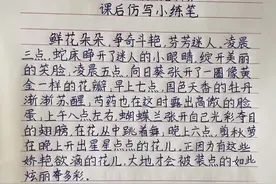 课后仿写小练笔
鲜花朵朵，争奇斗艳，芬芳迷人。凌晨
三点，蛇床睁开了迷人的小眼睛，绽开美丽
的笑脸，凌晨五点，向日葵张开了一圈像黄
金一样的花瓣，早上七点，国色天香的牡丹
渐渐苏醒，芍药也在这时露出高傲的脸
蛋，上午八点左右，蝴蝶兰张开自己光彩夺目
的翅膀，在花丛中跳着舞，晚上六点，剪秋萝
在晚上开出星星点点的花儿，正因为有这些
娇艳欲滴的花儿，大地才会被装点的如此
炫丽多彩。